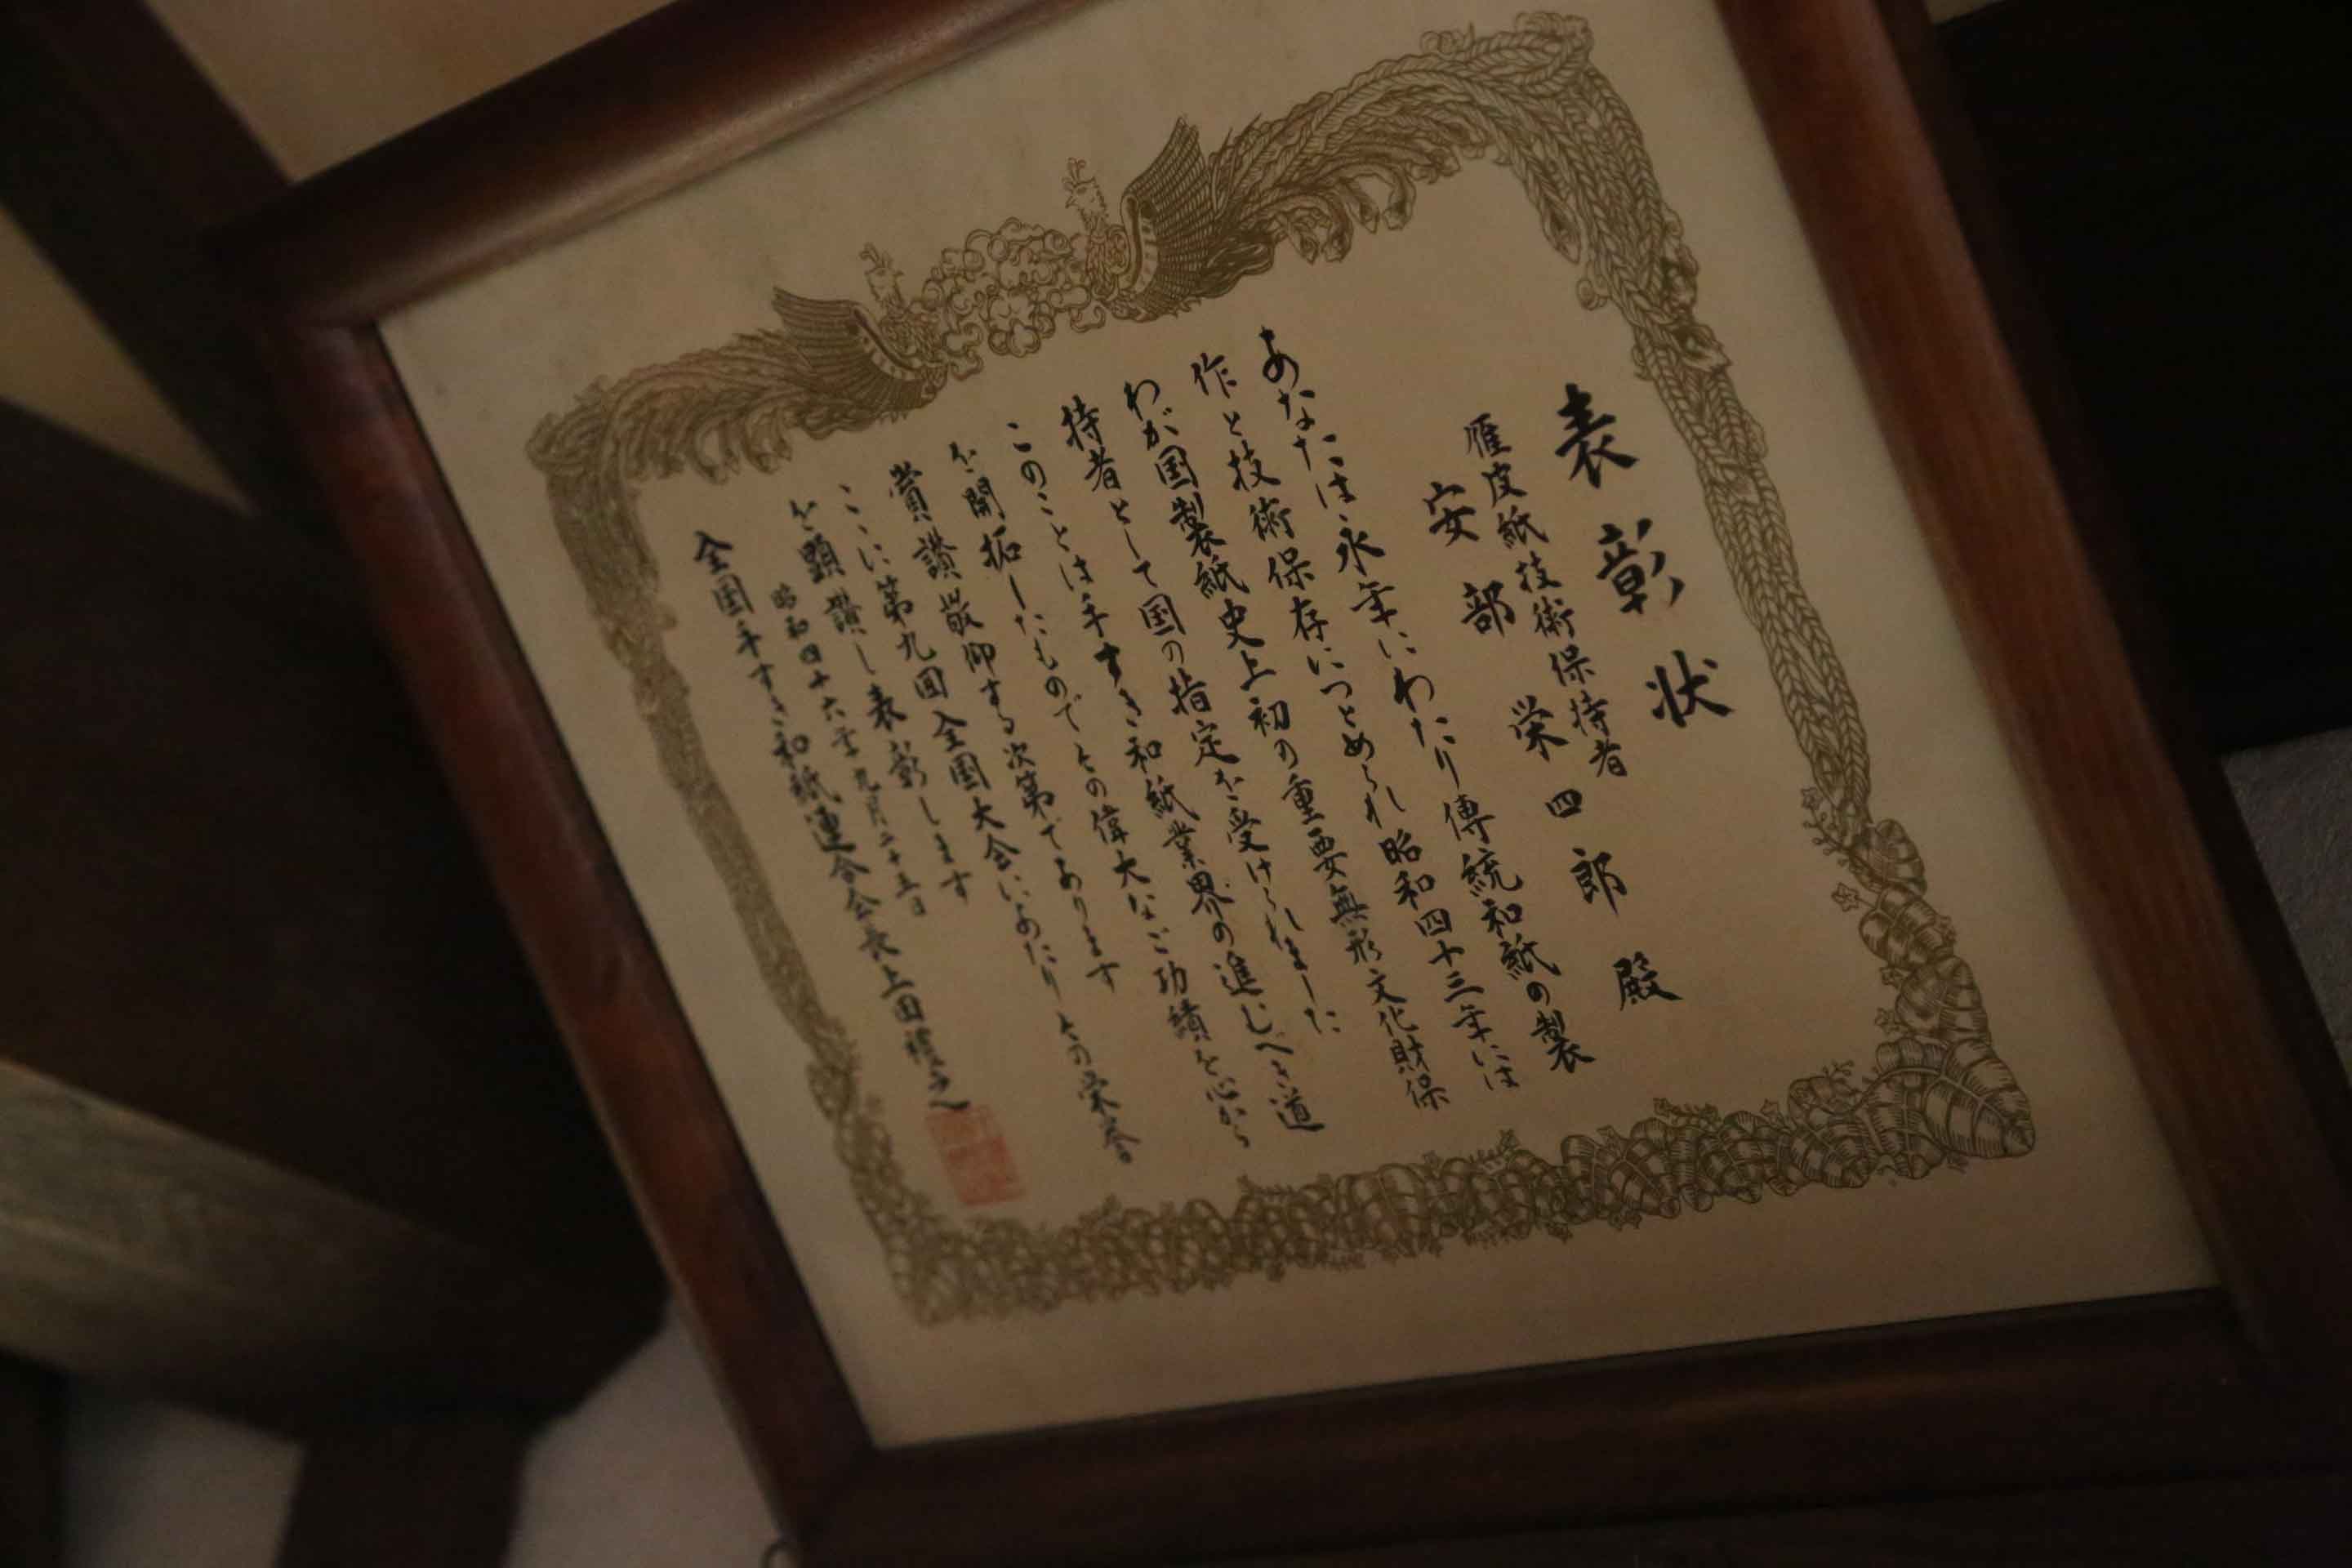 表彰状
雁皮紙技術保持者
安部栄四郎殿
あなたは永年にわたり傳統和紙の製
作と技術保存につとめられ昭和四十三年には
わが国製紙史上初の重要無形文化財保
持者として国の指定を受けられました
このことは手すき和紙業界の進むべき道
を開拓したものでその偉大なご功績を心から
賞讃敬仰する次第であります
ここに第九回全国大会にあたりその栄誉
を顕讃し表彰します
昭和四十六年九月二十五日
全国手すき和紙連合会会長上田